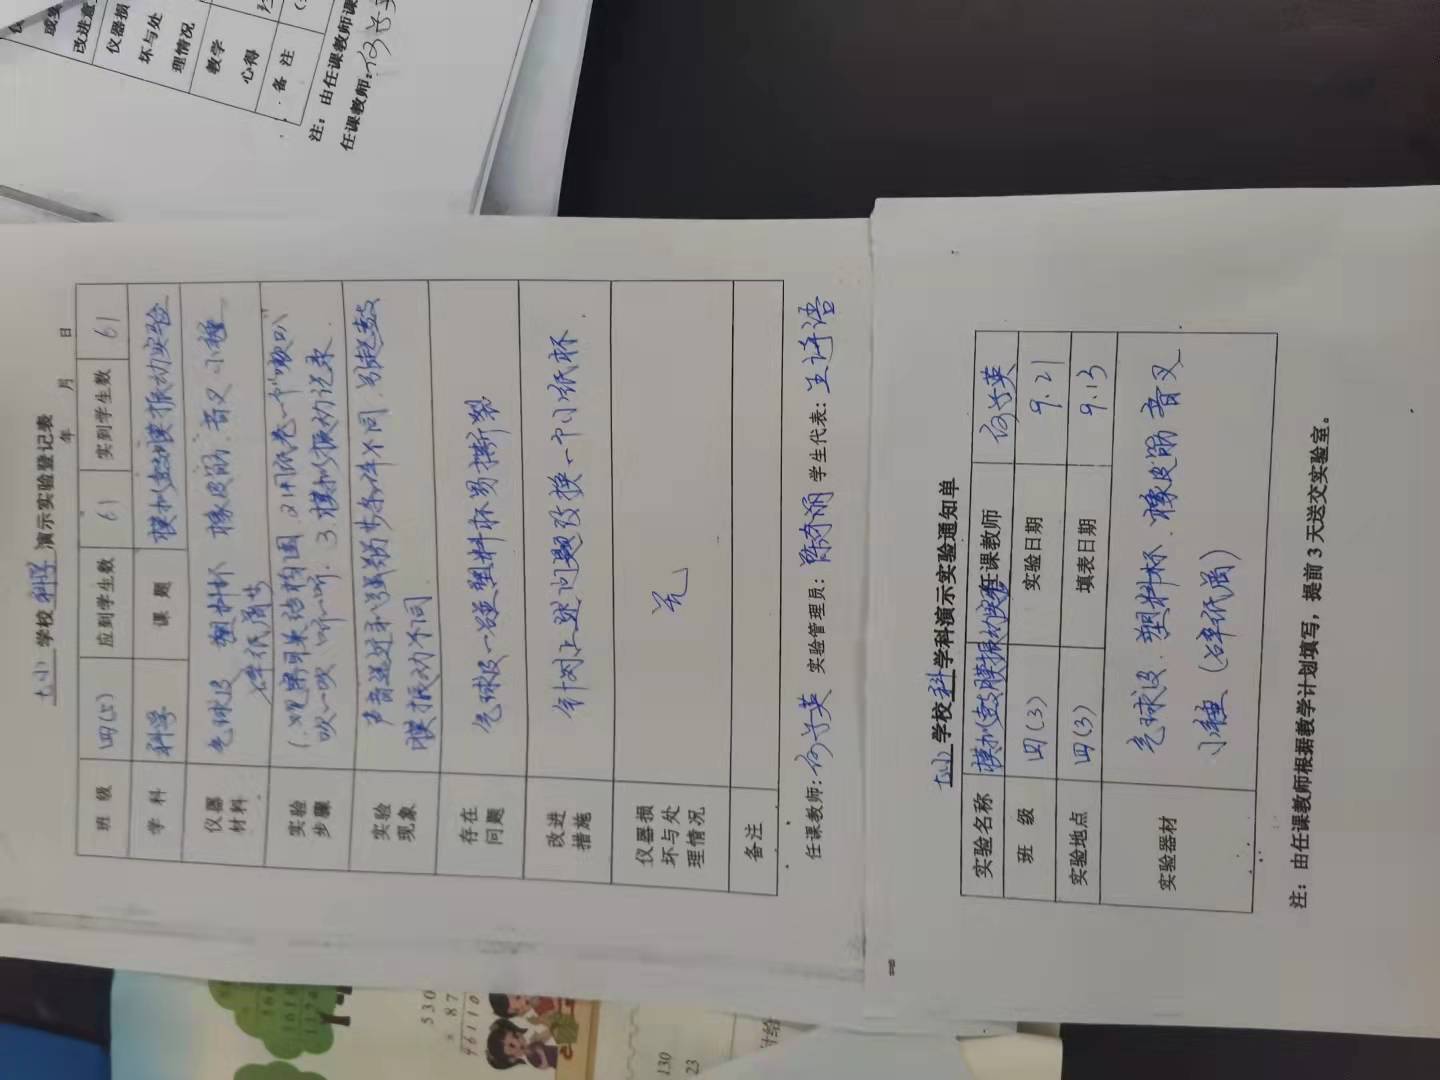 七小 学校 科学 演示实验登记表
年 月 日
班 级 四(5) 应到学生数 61 实到学生数 61
学 科 科学 课 题 模拟鼓膜振动实验
仪器材料 气球皮 塑料杯 橡皮筋 音叉 小锤
碎纸屑
实验步骤 1.观察耳朵结构图 2.用纸卷一个“喇叭”
吹一吹 听一听. 3.模拟振动记录
实验现象
膜振动不同
存在问题 气球皮一碰塑料杯易撕裂
改进措施 针对上述问题改换一个小纸杯
仪器损坏与处理情况 无
备注
任课教师: 实验管理员: 学生代表:
七小 学校 科 学科演示实验通知单
实验名称 模拟鼓膜振动实验 任课教师
班 级 四(3) 实验日期 9.21
实验地点 四(3) 填表日期 9.13
实验器材 气球皮、塑料杯、橡皮筋 音叉
小锤 (碎纸屑)
注: 由任课教师根据教学计划填写, 提前 3 天送交实验室。
改进意
仪器损
坏与处
理情况
教学
心得
备 注
注: 由任课教师课
任课教师:
530
× 87
46110
130
23